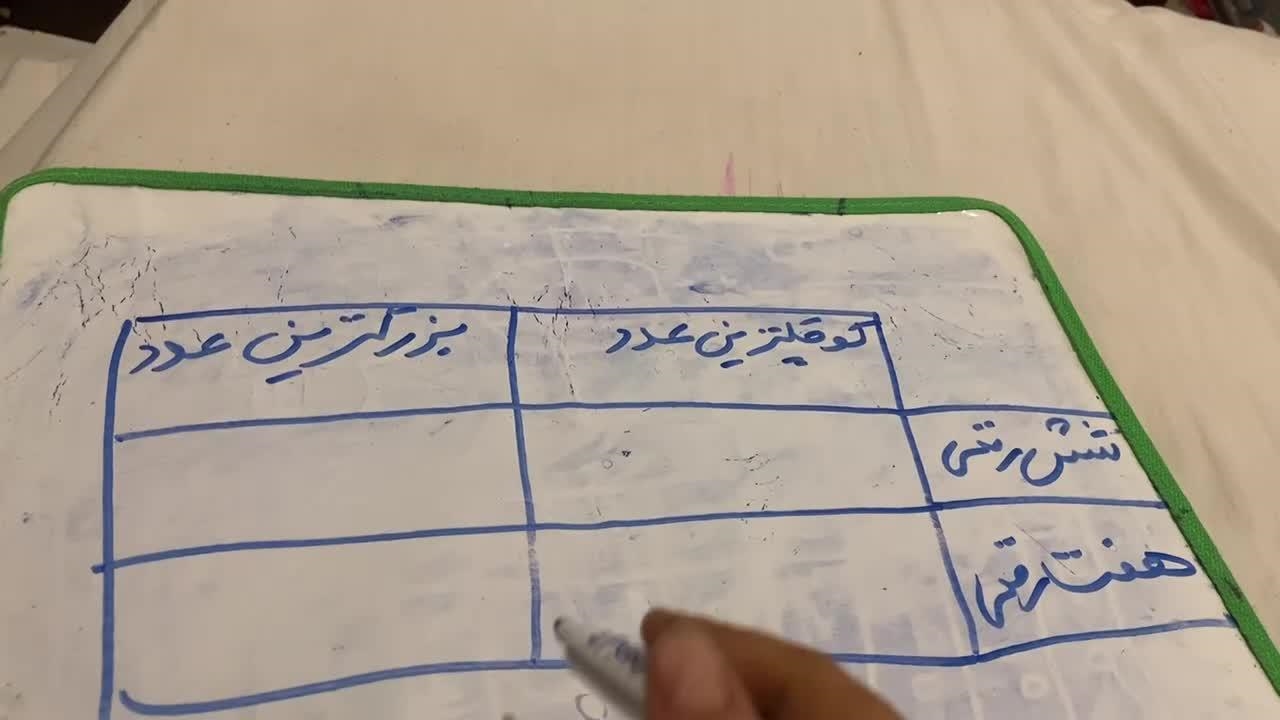 کوچکترین عدد
بزرگترین عدد
شش رقمی
هفت رقمی